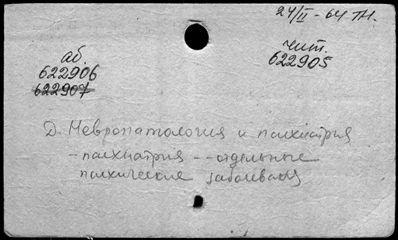 24/II - 64 ТН.
аб.
622906
622907
чит.
622905
Д. Невропатология и психиатрия
- психиатрия -- отдельные
психические заболевания